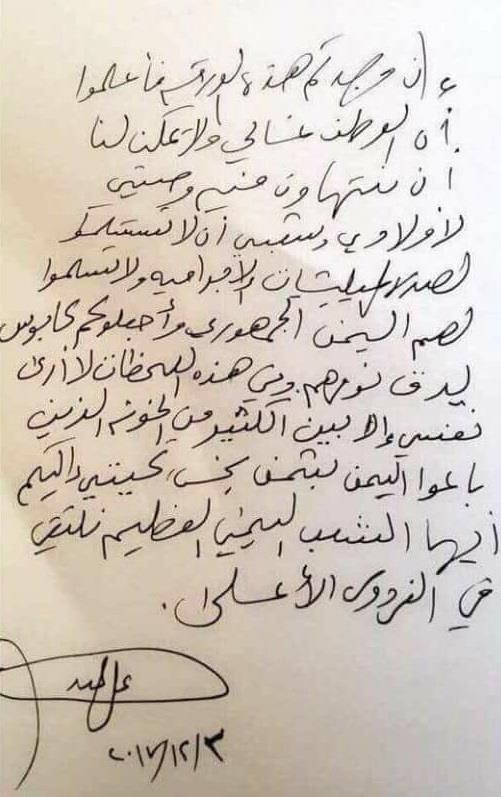 إن وجدتم هذه الورقة فأعلموا
أن الوطن غالي ولا يمكن لنا
أن نتهاون فيه وصيتي
لأولادي وشعبي أن لا تستسلمو
لهذه المليشيات الإجرامية ولا تسلموا
لهم اليمن الجمهوري وأجعلوكم كابوس
يدق نومهم. وفي هذه اللحظات لا أرى
نفسي إلا بين الكثير من الخونة الذين
باعوا اليمن بثمن بخس، تحيتي إليكم
أيها الشعب اليمني العظيم نلتقي
في الفردوس الأعلى.
٢٠١٧/١٢/٣